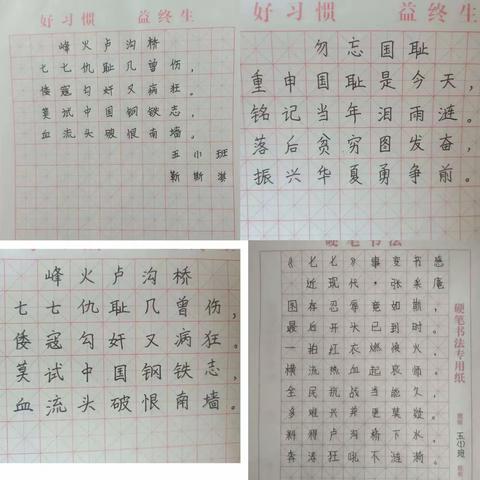 好习惯 益终生
峰火卢沟桥
七七仇耻几曾伤，
倭寇勾奸又病狂。
莫试中国钢铁志，
血流头破恨南墙。
五小班
好习惯 益终生
勿忘国耻
重申国耻是今天，
铭记当年泪雨涟。
落后贫穷图发奋，
振兴华夏勇争前。
峰火卢沟桥
七七仇耻几曾伤，
倭寇勾奸又病狂。
莫试中国钢铁志，
血流头破恨南墙。
硬笔书法
《七七》事变书感
近现代，张庵
国存忍辱竟如斯，
最后开头已到时。
一拍红衣燃火，
横流热血起哀师。
全民抗战当能久，
多难兴更莫疑。
料得卢沟桥下水，
奔涛狂吼不
硬笔书法专用纸
五小班